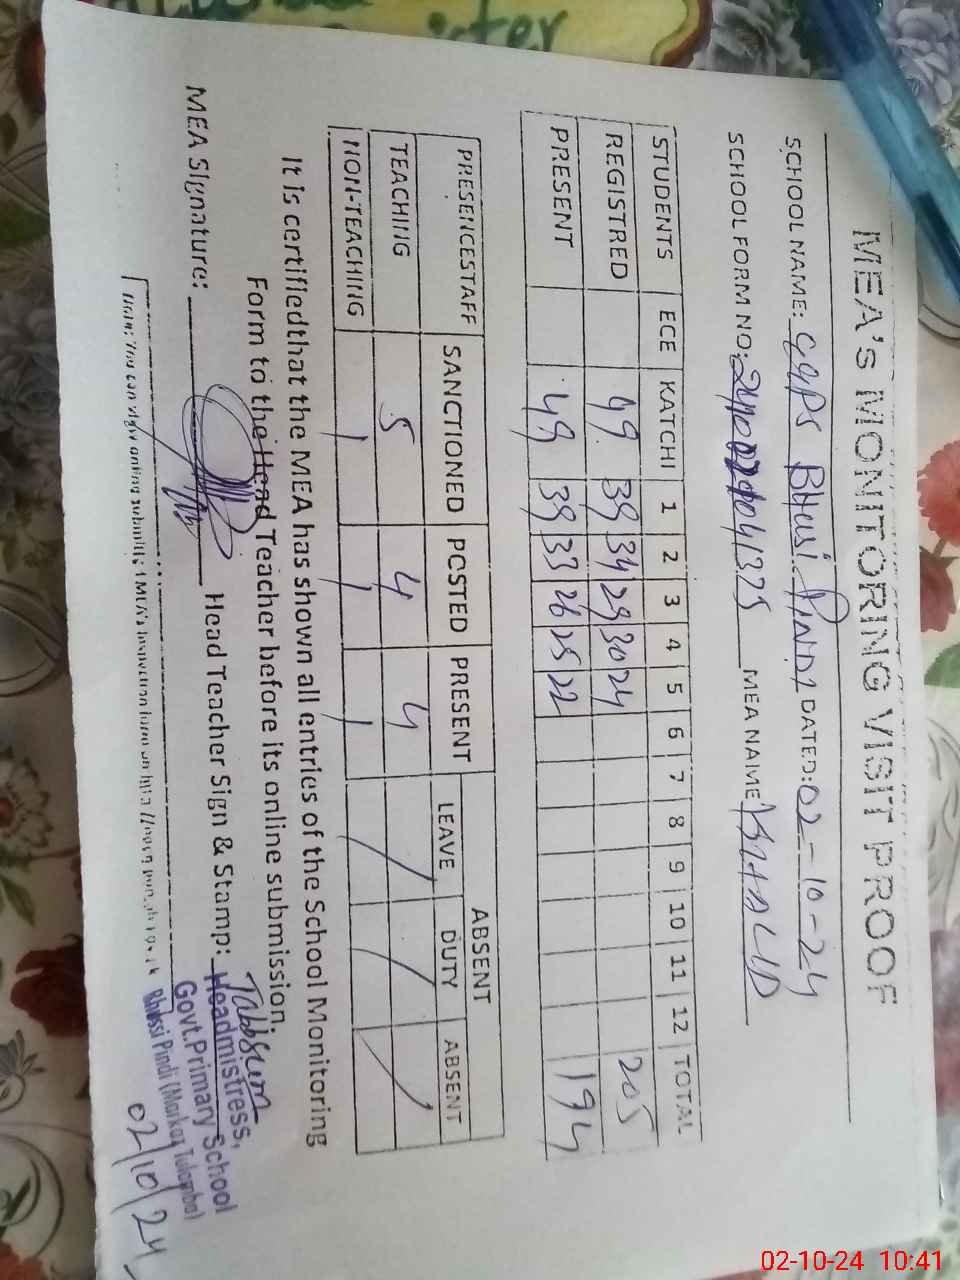 MEA's MONITORING VISIT PROOF
SCHOOL NAME: GGPS BHUSI PINDI DATED: 02-10-24
SCHOOL FORM NO: MEA NAME KHALID
STUDENTS ECE KATCHI 1 2 3 4 5 6 7 8 9 10 11 12 TOTAL
REGISTRED 49 39 34 29 30 24 205
PRESENT 49 39 33 26 25 22 194
PRESENCESTAFF SANCTIONED POSTED PRESENT ABSENT
LEAVE DUTY ABSENT
TEACHING 5 4 4
NON-TEACHING 1 1 1
It is certifiedthat the MEA has shown all entries of the School Monitoring
Form to the Head Teacher before its online submission.
MEA Signature: Head Teacher Sign & Stamp: Tabbsum
Headmistress,
Govt.Primary School
Bhussi Pindi (Markaz Tulamba)
02/10/24
Note: You can view online submitted MEA's Inspection form on
02-10-24 10:41